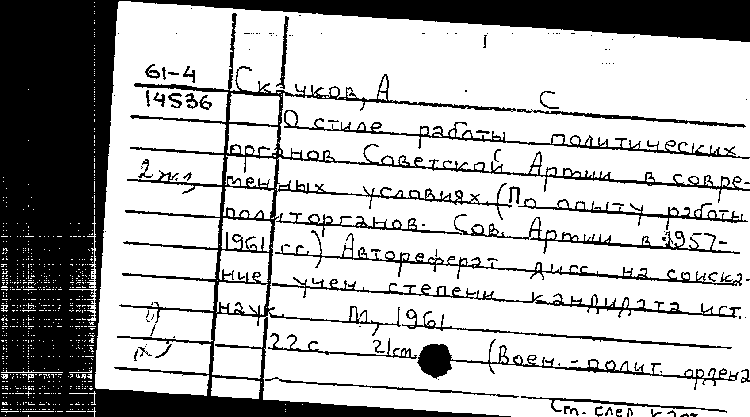 61-4 Скачков, А С
14536
О стиле работы политических
органов Советской Армии в совре-
2 экз,
менных условиях. (По опыту работы
политорганов. Сов. Армии в 1957-
1961 гг.) Автореферат дисс. на соиска-
ние учен. степени кандидата ист.
наук. М, 1961
22 с. 21 cm (Воен.-полит. ордена
См. след. карт.